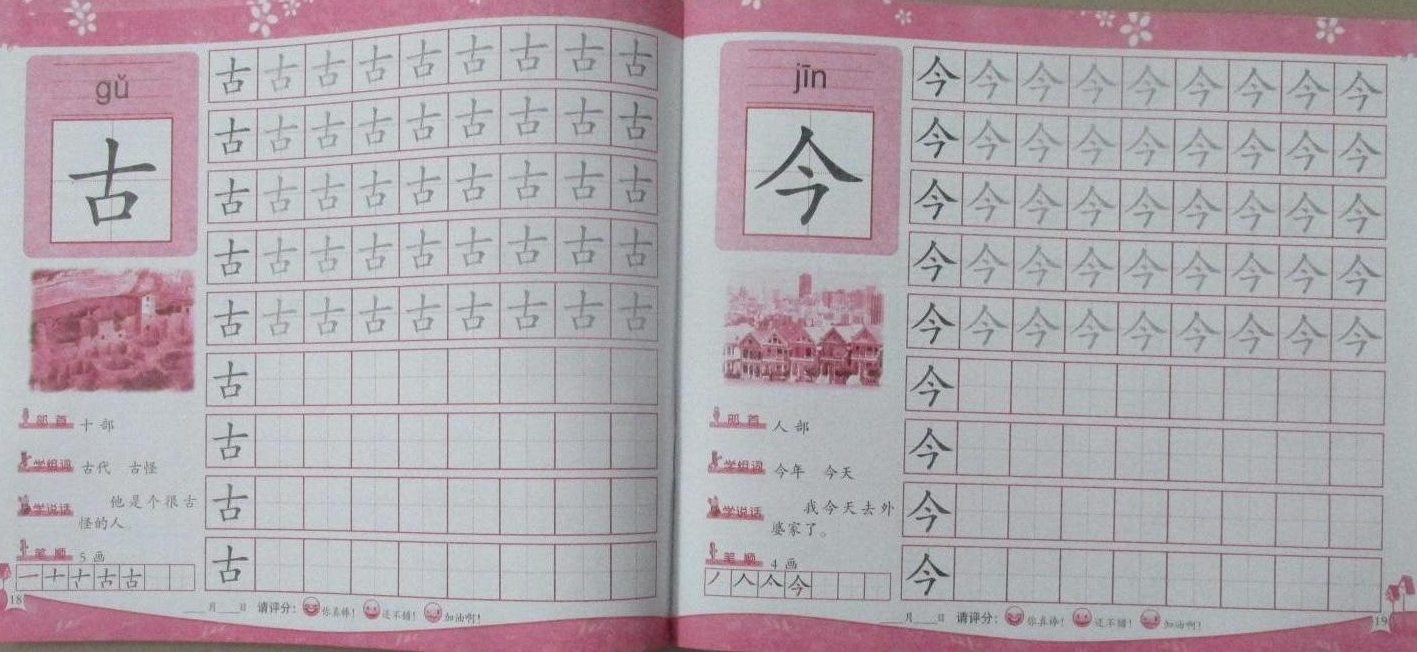 gǔ
古
古 古 古 古 古 古 古 古 古
古 古 古 古 古 古 古 古 古
古 古 古 古 古 古 古 古 古
古 古 古 古 古 古 古 古 古
古 古 古 古 古 古 古 古 古
古
古
古
古
部首 十部
学组词 古代 古怪
学说话 他是个很古
怪的人。
笔顺 5画
一 十 古 古
18
月 日 请评分: 你真棒! 还不错! 加油啊!
jīn
今
今 今 今 今 今 今 今 今 今
今 今 今 今 今 今 今 今 今
今 今 今 今 今 今 今 今 今
今 今 今 今 今 今 今 今 今
今 今 今 今 今 今 今 今 今
今
今
今
今
部首 人部
学组词 今年 今天
学说话 我今天去外
婆家了。
笔顺 4画
丿 人 亼 今
月 日 请评分: 你真棒! 还不错! 加油啊!
19